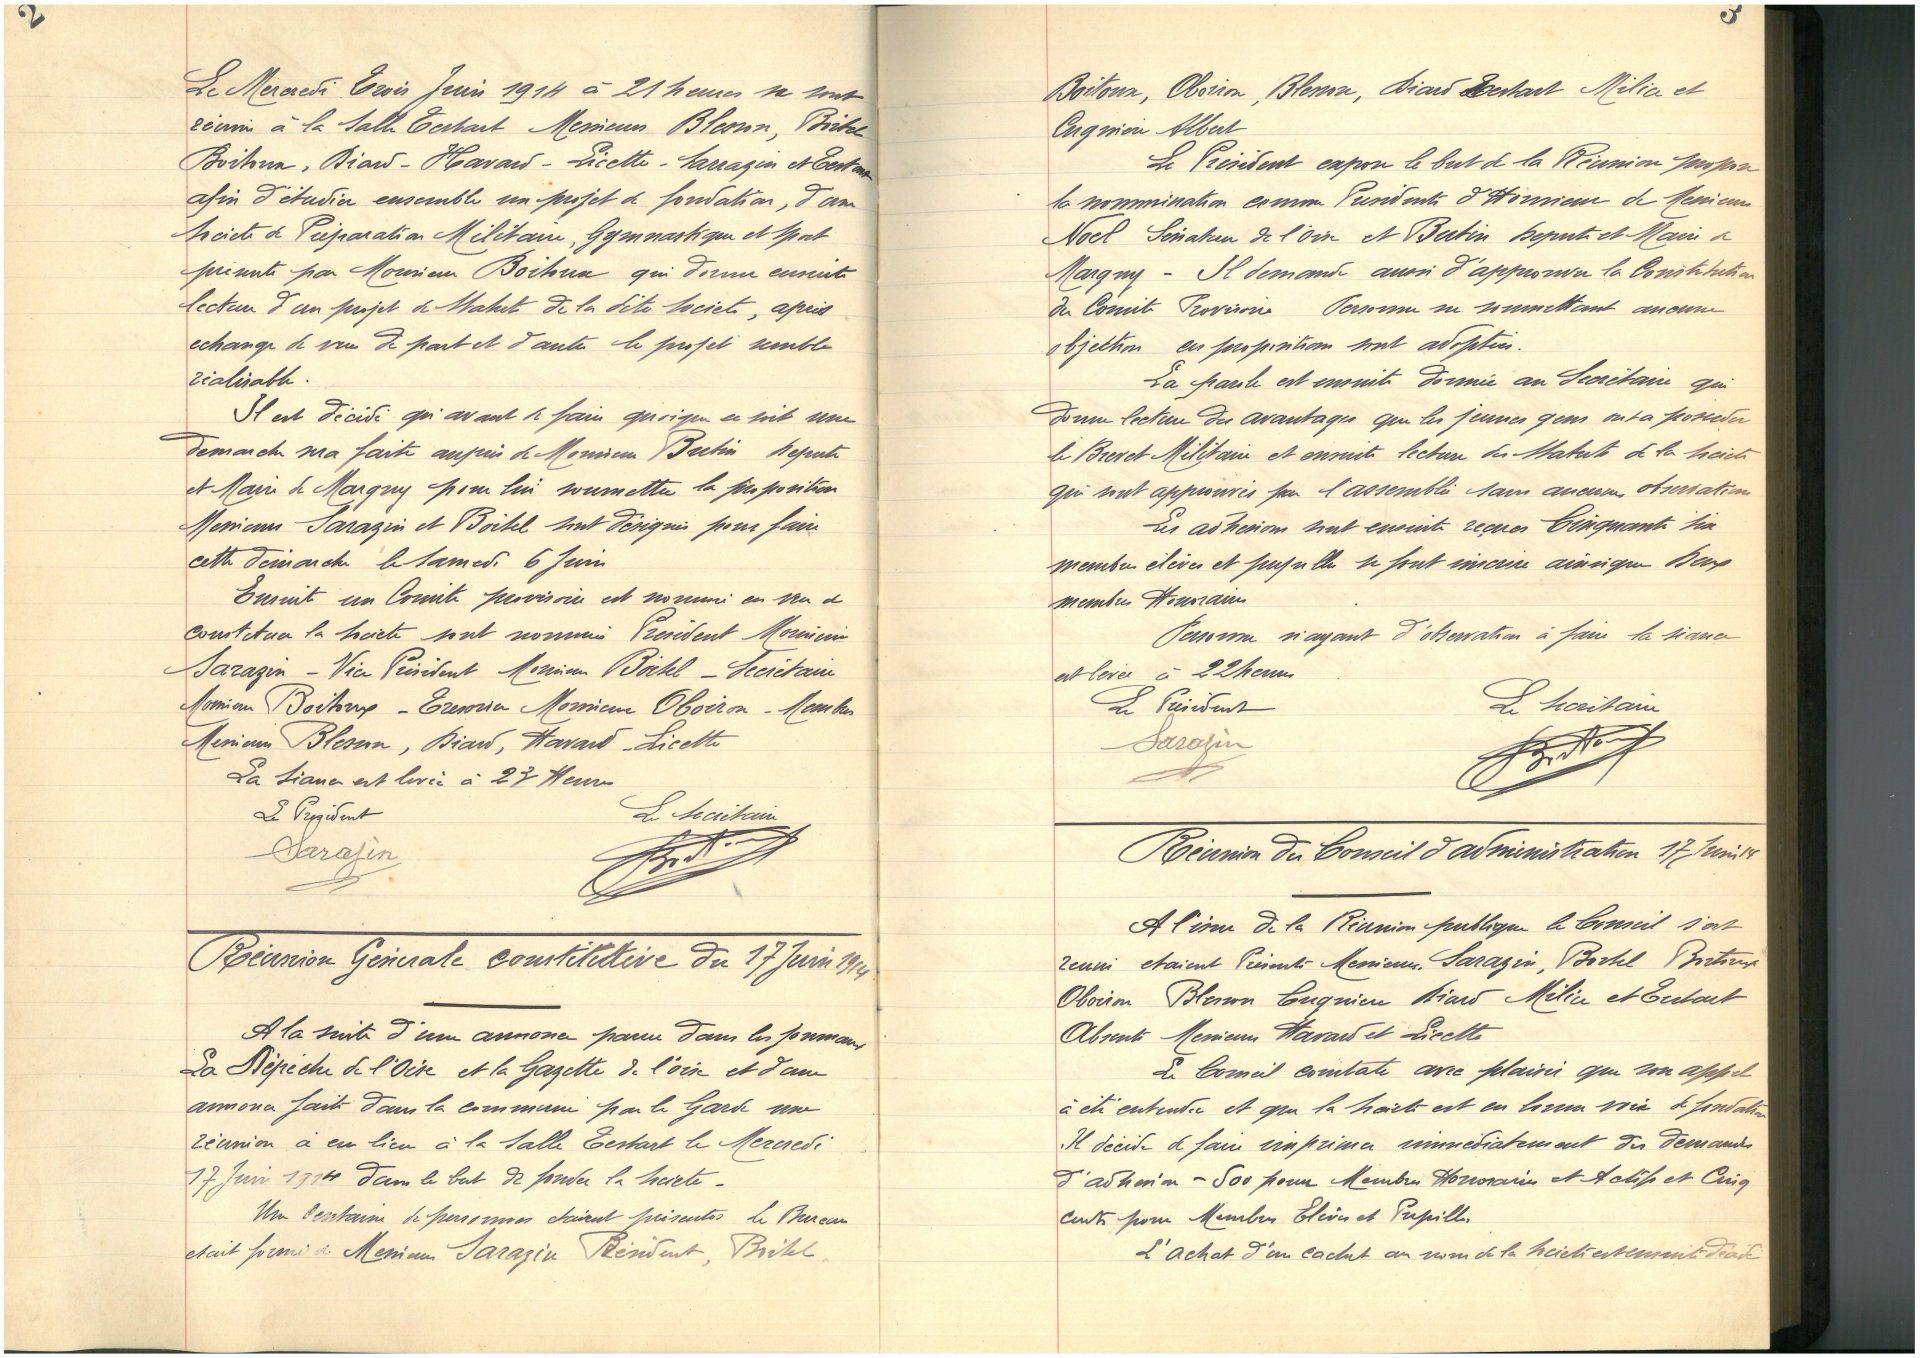 2
Le Mercredi Trois Juin 1914 à 21 heures se sont
réunis à la Salle Tertart Messieurs Blesson, Boitel
Boitoux, Biard - Havard - Licette - Sarrazin et
afin d'étudier ensemble un projet de fondation, d'une
Societe de Préparation Militaire, Gymnastique et Sport
présenté par Monsieur Boitoux qui donne ensuite
lecture d'un projet de Statuts de la dite Societe, après
echange de vue de part et d'autre le projet semble
réalisable.
Il est décidé qu'avant de faire quoique ce soit une
demarche sera faite auprès de Monsieur Butin Deputé
et Maire de Margny pour lui soumettre la proposition
Messieurs Sarazin et Boitel sont désignés pour faire
cette démarche le Samedi 6 Juin
Ensuite un Comité provisoire est nommé en vue de
constituer la Societe sont nommés President Monsieur
Sarazin - Vice Président Monsieur Boitel - Secrétaire
Monsieur Boitoux - Tresorier Monsieur Oboiron - Membres
Messieurs Blesson, Biard, Havard - Licette
La Séance est levée à 23 Heures
Le Président Le Secrétaire
Sarazin
Réunion Générale constitutive du 17 Juin 1914
A la suite d'une annonce parue dans les journaux
La Dépêche de l'Oise et la Gazette de l'Oise et d'une
annonce faite dans la commune par le Garde une
réunion a eu lieu à la Salle Tertart le Mercredi
17 Juin 1914 dans le but de fonder la Societe -
Une Centaine de personnes étaient présentes le Bureau
etait formé de Messieurs Sarazin Président, Boitel
3
Boitoux, Oboiron, Blesson, Biard Tertart Milice et
Cugnière Albert
Le Président expose le but de la Réunion propose
la nommination comme Presidents d'Honneur de Messieurs
Noel Sénateur de l'Oise et Butin Deputé et Maire de
Margny - Il demande aussi d'approuver la Constitution
du Comité Provisoire Personne ne soumettant aucune
objection ces propositions sont adoptées.
La parole est ensuite donnée au Secrétaire qui
donne lecture des avantages que les jeunes gens ont a posseder
le Brevet Militaire et ensuite lecture des Statuts de la Societe
qui sont approuvés par l'assemblée sans aucune observation
Les adhesions sont ensuite reçues Cinquante six
membres élèves et pupilles se font inscrire ainsi que Deux
membres Honoraires
Personne n'ayant d'observation à faire la séance
est levée à 22 heures
Le Président Le Secrétaire
Sarazin
Réunion du Conseil d'administration 17 Juin 14
A l'issue de la Réunion publique le Conseil s'est
reuni etaient Présents Messieurs Sarazin, Boitel Boitoux
Oboiron Blesson Cugnière Biard Milice et Tertart
Absents Messieurs Havard et Licette
Le Conseil constate avec plaisir que son appel
à été entendu et que la Societe est en bonne voie de fondation
Il décide de faire imprimer immédiatement des demandes
d'adhésion - 500 pour Membres Honoraires et Actifs et Cinq
cents pour Membres Elèves et Pupilles
L'achat d'un cachet au nom de la Societe est ensuite décidé